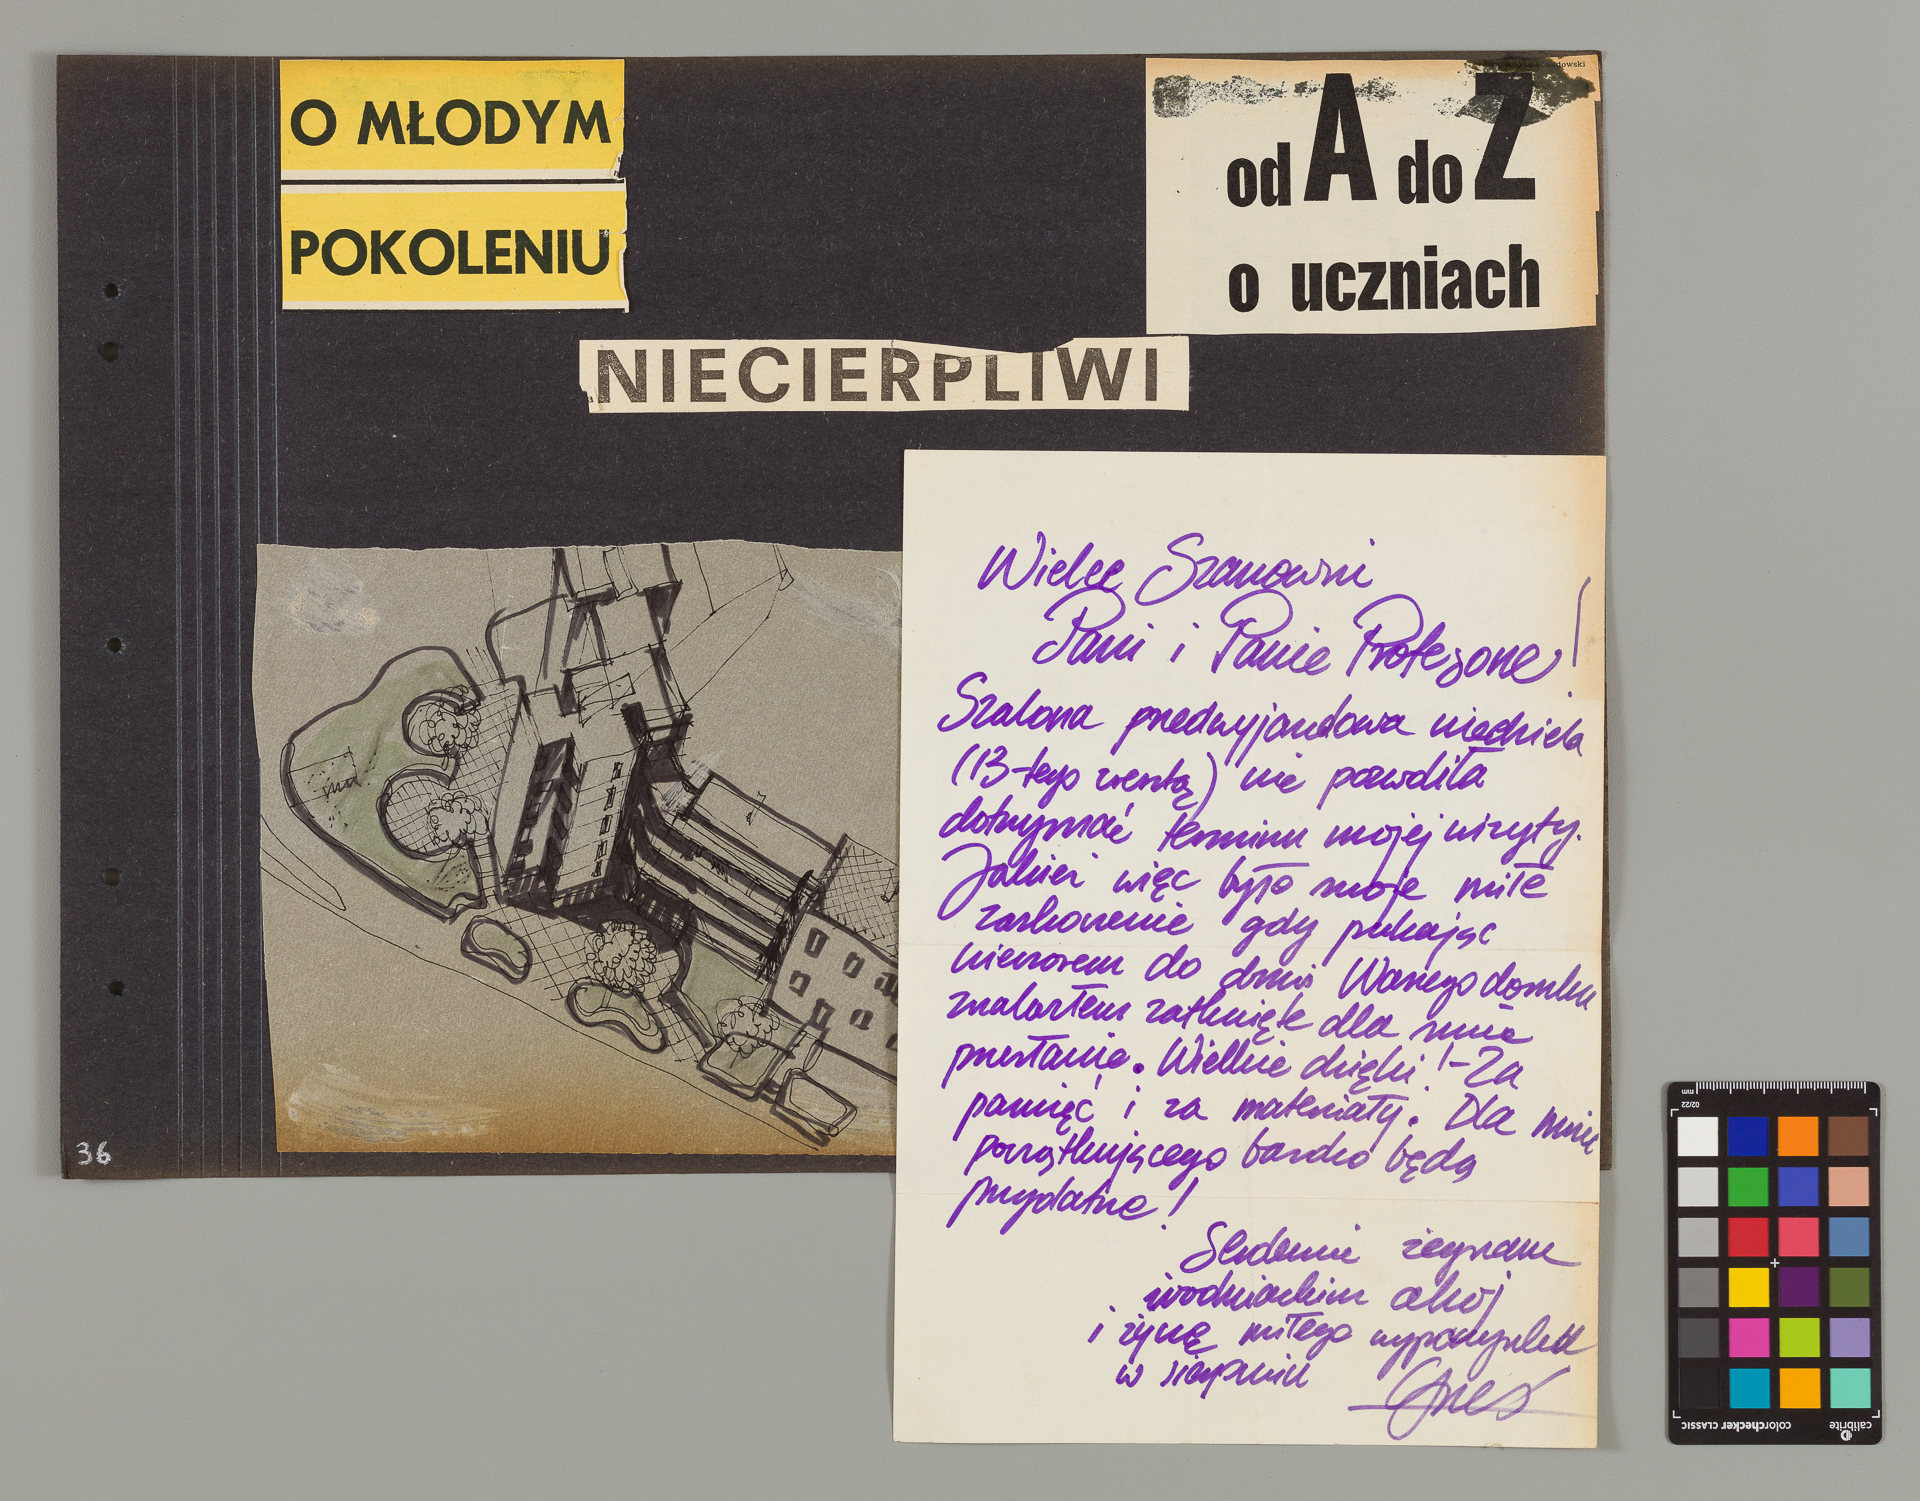 O MŁODYM
POKOLENIU
od A do Z
o uczniach
NIECIERPLIWI
Wielce Szanowni
Pani i Panie Profesorze!
Szalona przedwyjazdowa niedziela
(13-tego zresztą) nie pozwoliła
dotrzymać terminu mojej wizyty.
Jakież więc było moje miłe
zaskoczenie gdy pukając
wieczorem do drzwi Waszego domku
znalazłem zatknięte dla mnie
przesłanie. Wielkie dzięki! - Za
pamięć i za materiały. Dla mnie
początkującego bardzo będą
przydatne!
Serdecznie żegnam
wodniackim ahoj
i życzę miłego wypoczynku
w sierpniu
36
mm
02/22
calibrite
colorchecker CLASSIC